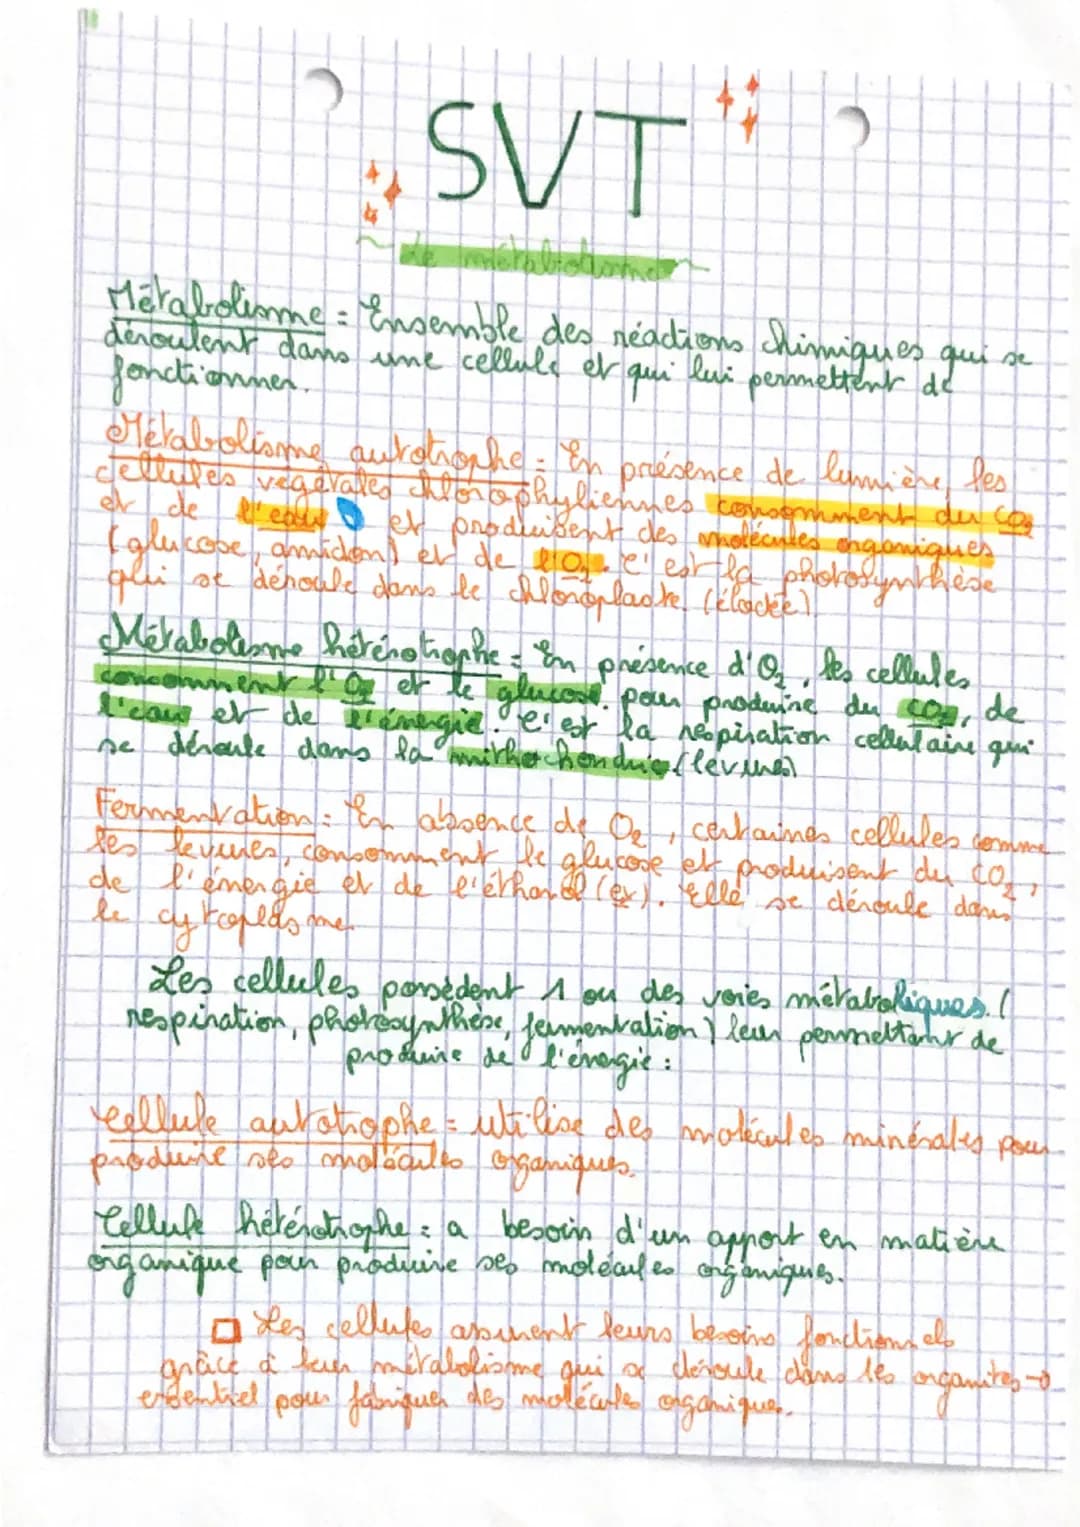 SVT
Le métabolisme
Métabolisme = Ensemble des réactions chimiques qui se
déroulent dans une cellule et qui lui permettent de
fonctionner.
Métabolisme autotrophe = En présence de lumière, les
cellules végétales chlorophyliennes consomment du CO2
et de l'eau et produisent des molécules organiques
(glucose, amidon) et de l'O2. C'est la photosynthèse
qui se déroule dans le chloroplaste. (élodée)
Métabolisme hétérotrophe = En présence d'O2, les cellules
concomment l'O2 et le glucose. pour produire du CO2, de
l'eau et de l'énergie. C'est la respiration cellulaire qui
se déroule dans la mithochondrie (levures)
Fermentation : En absence de O2, certaines cellules comme
les levures, consomment le glucose et produisent du CO2,
de l'énergie et de l'éthanol (ex). Elle se déroule dans
le cytoplasme.
Les cellules possèdent 1 ou des voies métaboliques. (
respiration, photosynthèse, fermentation) leur permettant de
produire de l'énergie :
Cellule autotrophe = utilise des molécules minérales pour
produire ses molécules organiques.
Cellule hétérotrophe : a besoin d'un apport en matière
organique pour produire ses molécules organiques.
Les cellules assurent leurs besoins fonctionnels
grâce à leur métabolisme qui se déroule dans les organites →
essentiel pour fabriquer des molécules organiques.